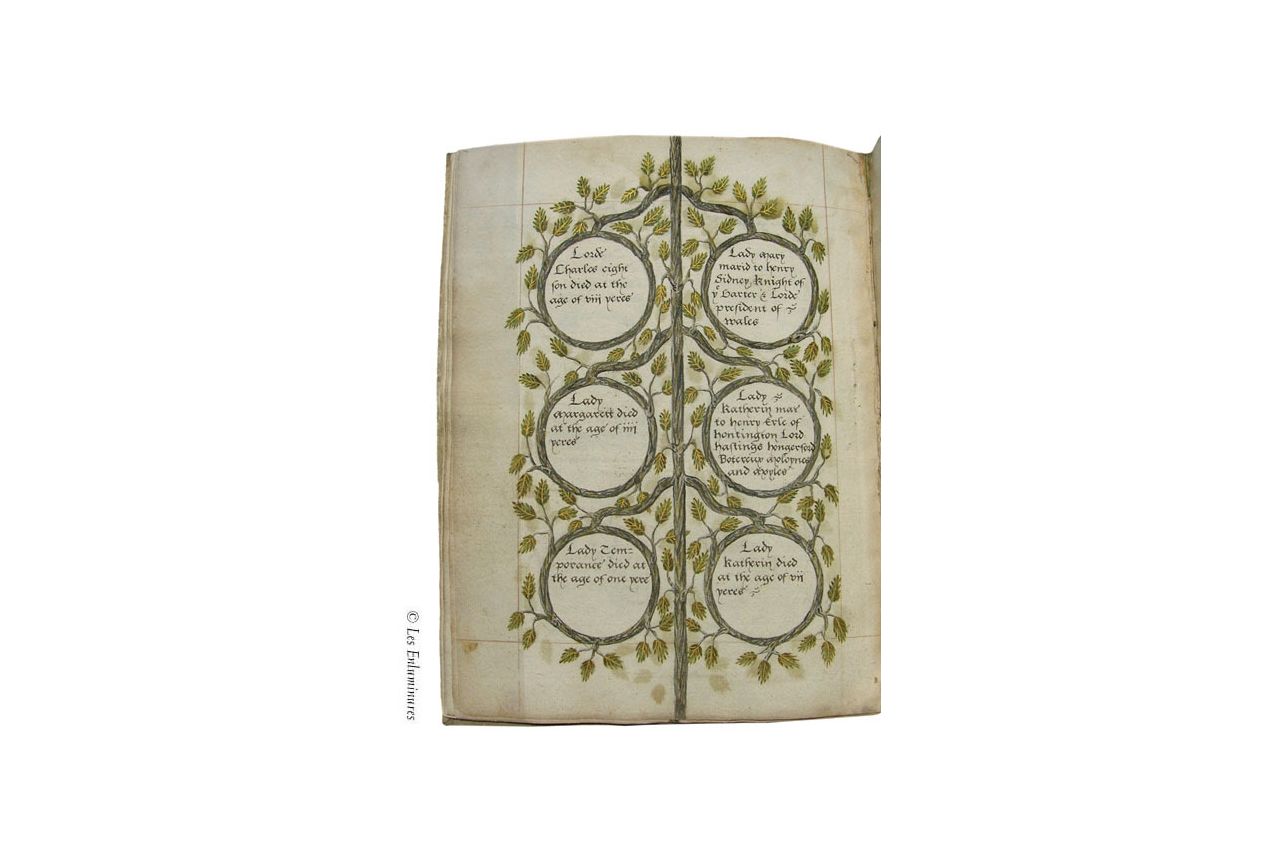 Lorde
Charles eight
son died at the
age of viii yeres
Lady Mary
marid to henry
Sidney Knight of
yᵉ Garter & Lorde
president of
wales
Lady
Margarett died
at the age of iiij
yeres
Lady
Katherin mar
to henry Erle of
hontington Lord
hastings hongerford
Botereux Moloynes
and Moyles
Lady Tem=
porance died at
the age of one yere
Lady
Katherin died
at the age of vij
yeres
© Les Enluminures